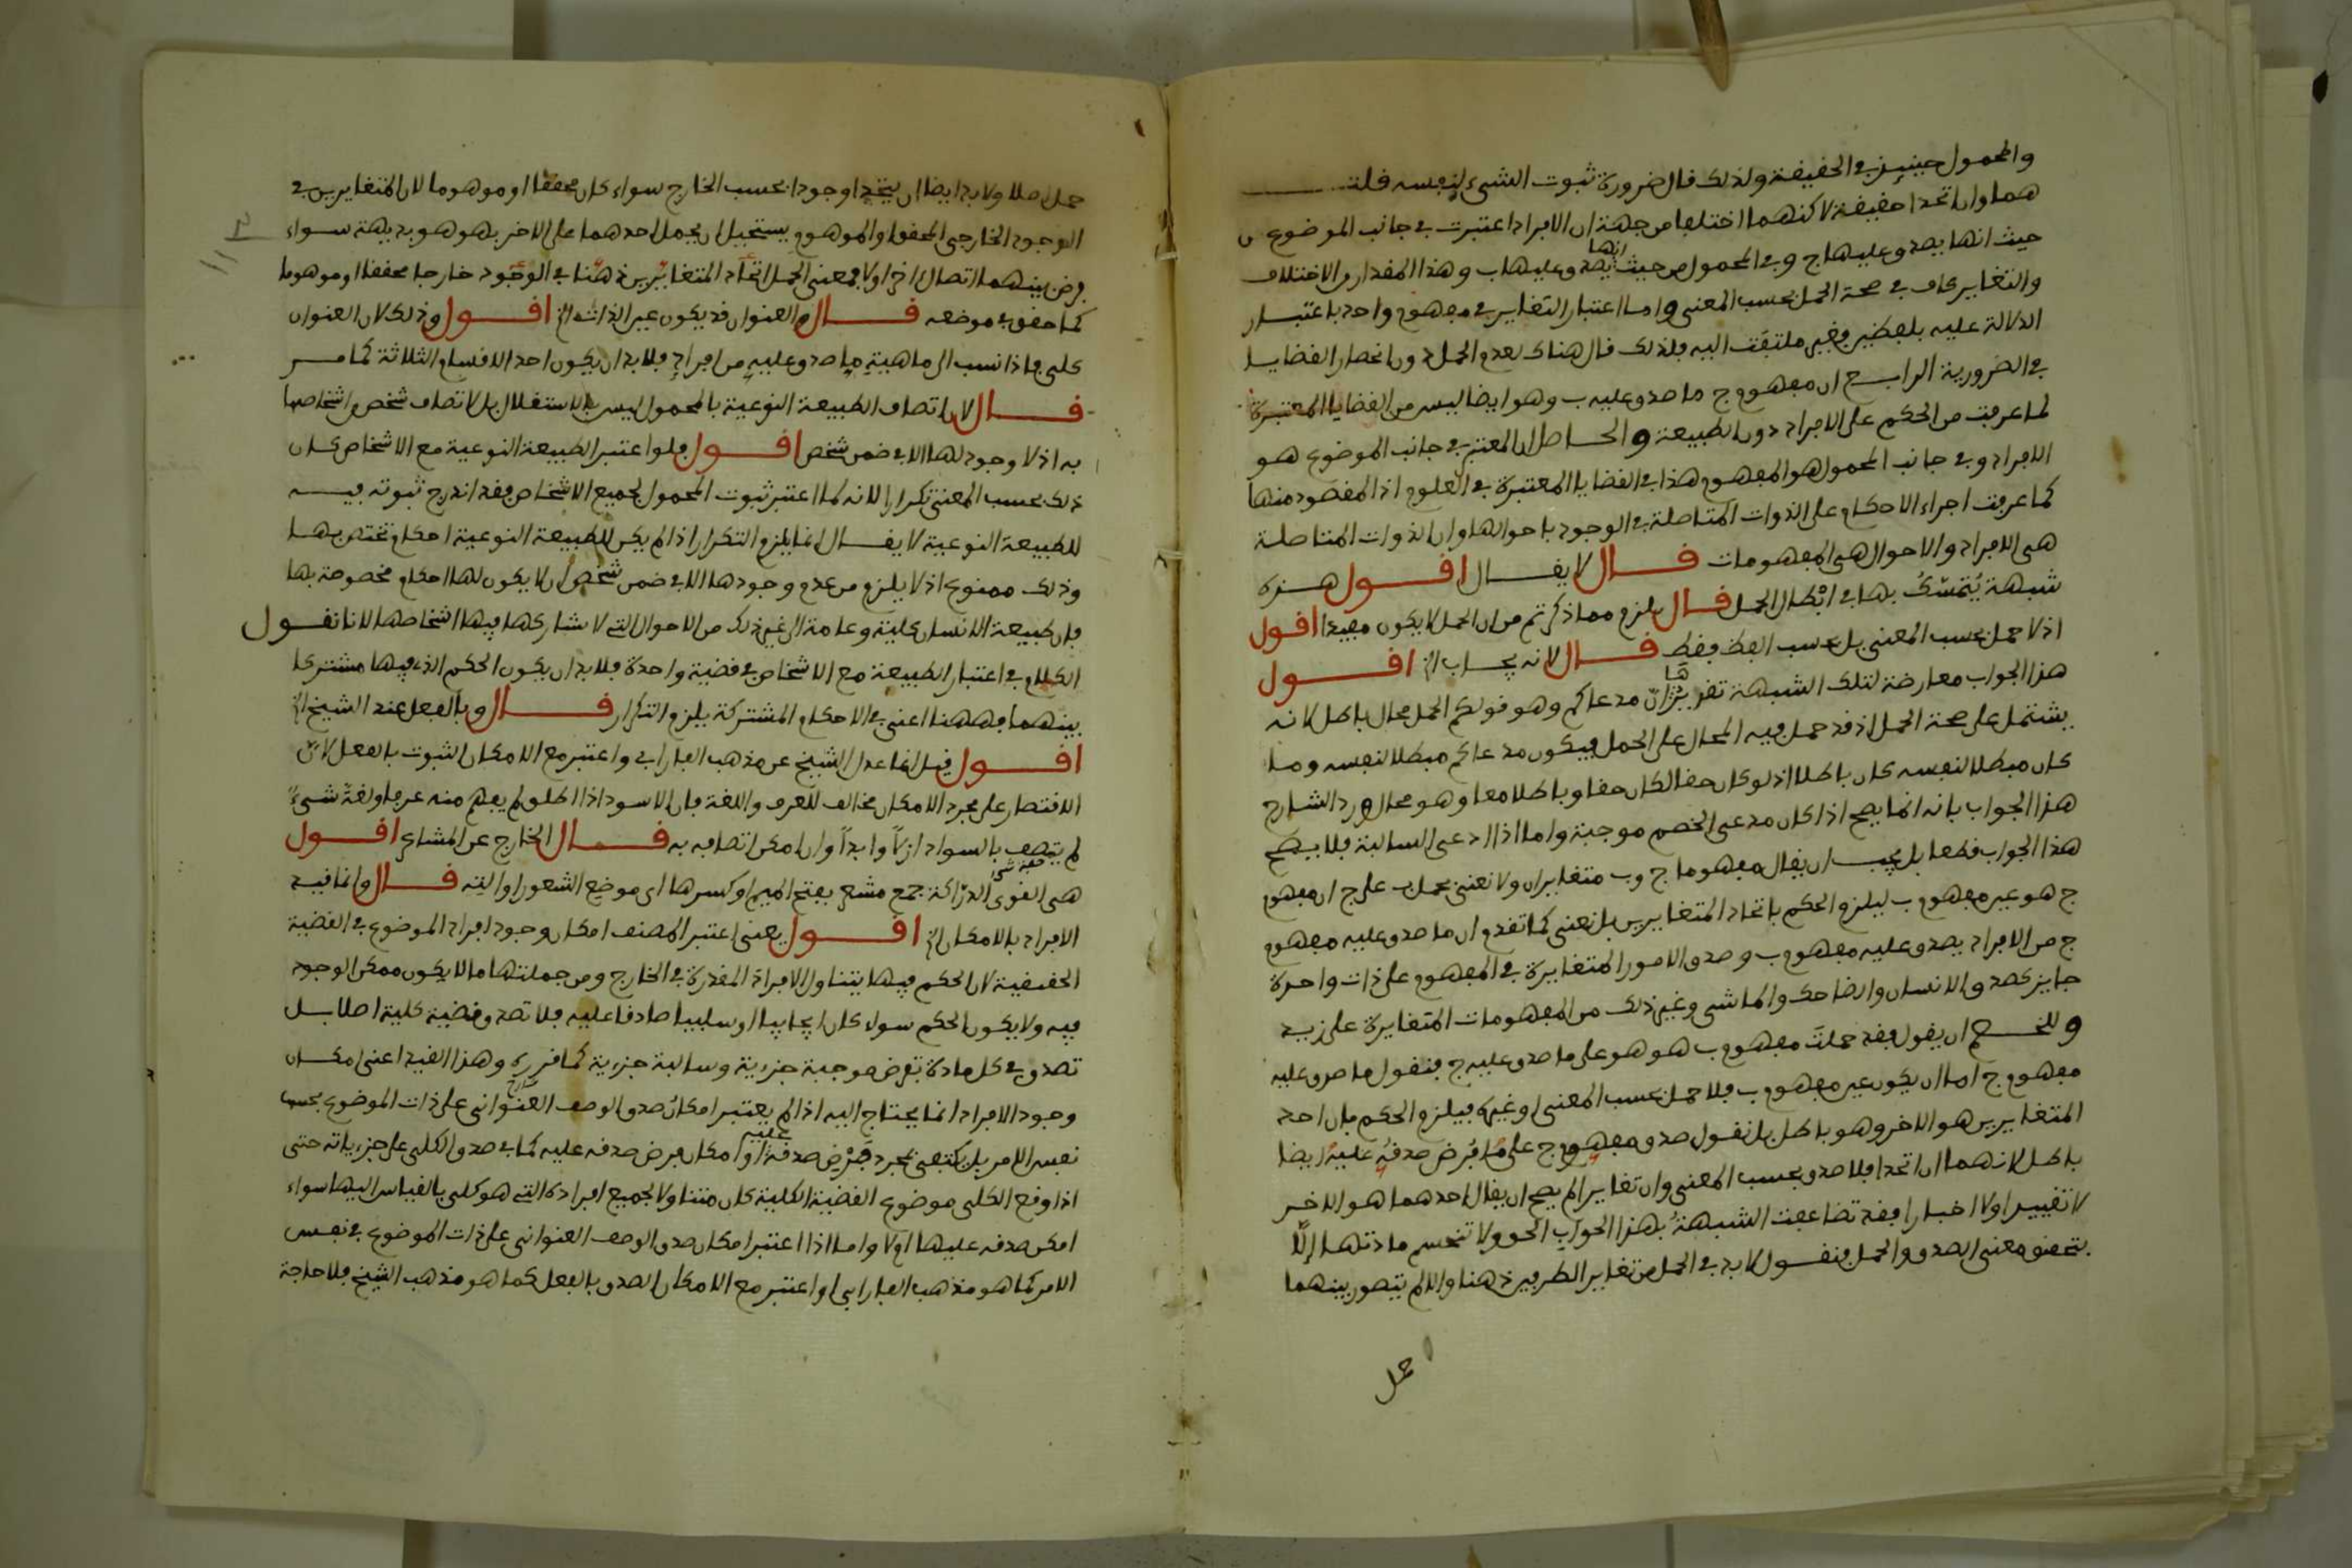 والمحمول حينئذ في الحقيقة ولذلك قال ضرورة ثبوت الشيء لنفسه قلت
هما وان اتحدا حقيقة لاكنهما اختلفا من جهة ان الافراد اعتبرت في جانب الموضوع من
حيث انها يصدق عليها ج وفي المحمول من حيث انها يصدق عليها ب وهذا المقدار من الاختلاف
والتغاير كاف في صحة الحمل بحسب المعنى واما اعتبار التغاير في مفهوم واحد باعتبار
الدلالة عليه بلفظين فغير ملتفت اليه فلذلك قال هناك بعدم الحمل دون انحصار القضايا
في الضرورية الرابع ان مفهوم ج ما صدق عليه ب وهو ايضا ليس من القضايا المعتبرة
لما عرفت من الحكم على الافراد دون الطبيعة والحاصل ان المعتبر في جانب الموضوع هو
الافراد وفي جانب المحمول هو المفهوم هذا في القضايا المعتبرة في العلوم اذ المقصود منها
كما عرفت اجراء الاحكام على الذوات المتاصلة في الوجود باحوالها وان الذوات المتاصلة
هي الافراد والاحوال هي المفهومات قال لا يقال اقول هذه
شبهة يُتَمَسَّكُ بها في ابطال الحمل قال يلزم مما ذكرتم من ان الحمل لا يكون مفيدا اقول
اذ لا حمل بحسب المعنى بل بحسب اللفظ فقط قال لانه يجاب الخ اقول
هذا الجواب معارضة لتلك الشبهة تقريرها ان مدعاكم وهو قولكم الحمل محال باطل لانه
يشتمل على صحة الحمل اذ قد حمل فيه المحال على الحمل فيكون مدعاكم مبطلا لنفسه وما
كان مبطلا لنفسه كان باطلا اذ لو كان حقا لكان حقا وباطلا معا وهو محال ورد الشارح
هذا الجواب بانه انما يصح اذا كان مدعى الخصم موجبة واما اذا ادعى السالبة فلا يصح
هذا الجواب قطعا بل يجب ان يقال مفهوما ج وب متغايران ولا نعني بحمل ب على ج ان مفهوم
ج هو عين مفهوم ب ليلزم الحكم باتحاد المتغايرين بل نعني كما تقدم ان ما صدق عليه مفهوم
ج من الافراد يصدق عليه مفهوم ب وصدق الامور المتغايرة في المفهوم على ذات واحدة
جايز كصدق الانسان والضاحك والماشي وغير ذلك من المفهومات المتغايرة على زيد
وللخصم ان يقول فقد حملتَ مفهوم ب هو هو على ما صدق عليه ج فنقول ما صدق عليه
مفهوم ج اما ان يكون عين مفهوم ب فلا حمل بحسب المعنى او غيره فيلزم الحكم بان احد
المتغايرين هو الاخر وهو باطل بل نقول صدق مفهوم ج على ما فُرِض صدقه عليه ايضا
باطل لانهما ان اتحدا فلا صدق بحسب المعنى وان تغايرا لم يصح ان يقال احدهما هو الاخر
لا تقييدا ولا اخبارا فقد تضاعفت الشبهةُ بهذا الجواب الحق ولا تنحسم مادتها إلَّا
بتحقيق معنى الصدق والحمل فنقول لا بد في الحمل من تغاير الطرفين ذهنا والا لم يتصور بينهما
حمل
حمل اصلا ولا بد ايضا ان يتحدا وجودا بحسب الخارج سواء كان محققا او موهوما لان المتغايرين في
الوجود الخارجي المحقق او الموهوم يستحيل ان يحمل احدهما على الاخر بهو هو بديهة سواء
فرض بينهما اتصال اخر اولا فمعنى الحمل اتحاد المتغايرين ذهنا في الوجود خارجا محققا او موهوما
كما حقق في موضعه قال والعنوان قد يكون عين الذات الخ اقول وذلك لان العنوان
كلي فاذا نسب الى ماهيةِ ما صدق عليهِ من افرادِه فلا بد ان يكون احد الاقسام الثلاثة كما مر
قال لان اتصاف الطبيعة النوعية بالمحمول ليس بالاستقلال بل لاتصاف شخص من اشخاصها
به اذ لا وجود لها الا في ضمن شخص اقول فلو اعتبر الطبيعة النوعية مع الاشخاص كان
ذلك بحسب المعنى تكرارا لانه لما اعتبر ثبوت المحمول لجميع الاشخاص فقد اندرج ثبوته فيه
للطبيعة النوعية لا يقال انما يلزم التكرار اذا لم يكن للطبيعة النوعية احكام تختص بها
وذلك ممنوع اذ لا يلزم من عدم وجودها الا في ضمن شخص ان لا يكون لها احكام مخصوصة بها
فان طبيعة الانسان كلية وعامة الى غير ذلك من الاحوال التي لا يشاركها فيها اشخاصها لانا نقول
الكلام في اعتبار الطبيعة مع الاشخاص في قضية واحدة فلا بد ان يكون الحكم الذي فيها مشتركا
بينهما فههنا اعني في الاحكام المشتركة يلزم التكرار قال وبالفعل عند الشيخ الخ
اقول قيل انما عدل الشيخ عن مذهب الفارابي واعتبر مع الامكان الثبوت بالفعل لانّ
الاقتصار على مجرد الامكان مخالف للعرف واللغة فان الاسود اذا اطلق لم يفهم منه عرفا ولغة شيءٌ
لم يتصف بالسواد ازلاً وابداً وان امكن اتصافه به قال الخارج عن المشاعر اقول
هي القوى الدرّاكة جمع مشعر بفتح الميم او كسرها اي موضع الشعور او الته قال وانما قيد
الافراد بالامكان الخ اقول يعني اعتبر المصنف امكان وجود افراد الموضوع في القضية
الحقيقية لان الحكم فيها يتناول الافراد المقدرة في الخارج ومن جملتها ما لا يكون ممكن الوجود
فيه ولا يكون الحكم سواء كان ايجابيا او سلبيا صادقا عليه فلا تصدق قضية كلية اصلا بل
تصدق في كل مادة تفرض موجبة جزءية وسالبة جزءية كما قرره وهذا القيد اعني امكان
وجود الافراد انما يحتاج اليه اذا لم يعتبر امكان صدق الوصف العنواني على ذات الموضوع بحسب
نفس الامر بل يكتفى بمجرد فَرْضِ صدقه عليه او امكان فرض صدقه عليه كما في صدق الكلي على جزءياته حتى
اذا وقع الكلي موضوع القضية الكلية كان متناولا لجميع افراده التي هو كلي بالقياس اليها سواء
امكن صدقه عليها اولا واما اذا اعتبر امكان صدق الوصف العنواني على ذات الموضوع في نفس
الامر كما هو مذهب الفارابي او اعتبر مع الامكان الصدق بالفعل كما هو مذهب الشيخ فلا حاجة